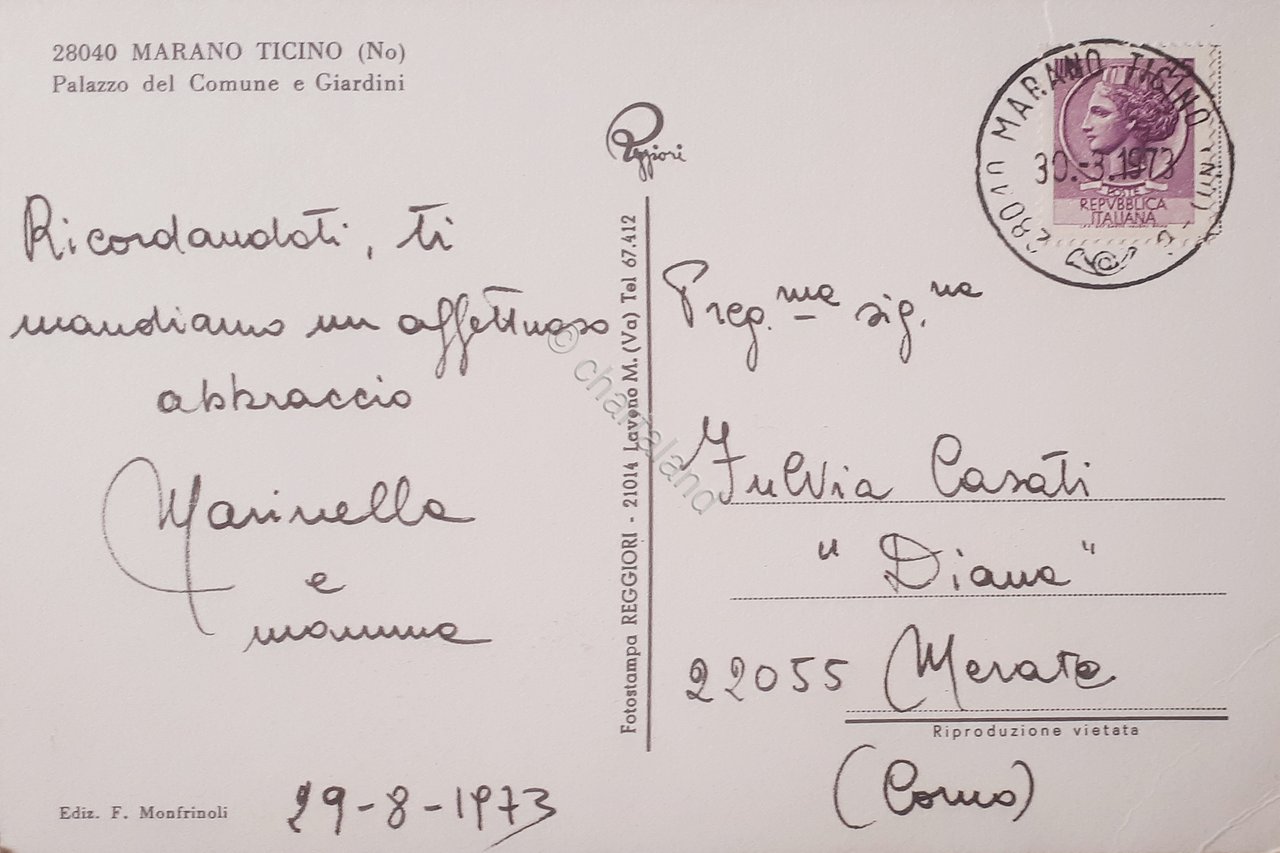 28040 MARANO TICINO (No)
Palazzo del Comune e Giardini
Reggiori
28040 MARANO TICINO (NO)
30.-3.1973
POSTE
REPVBBLICA
ITALIANA
Ricordandoti, ti
mandiamo un affettuoso
abbraccio
Marinella
e
mamma
29-8-1973
Ediz. F. Monfrinoli
Fotostampa REGGIORI - 21014 Laveno M. (Va) Tel 67.412
Preg.ma sig.na
Fulvia Casati
"Diana"
22055 Merate
Riproduzione vietata
(Como)
© chartaland